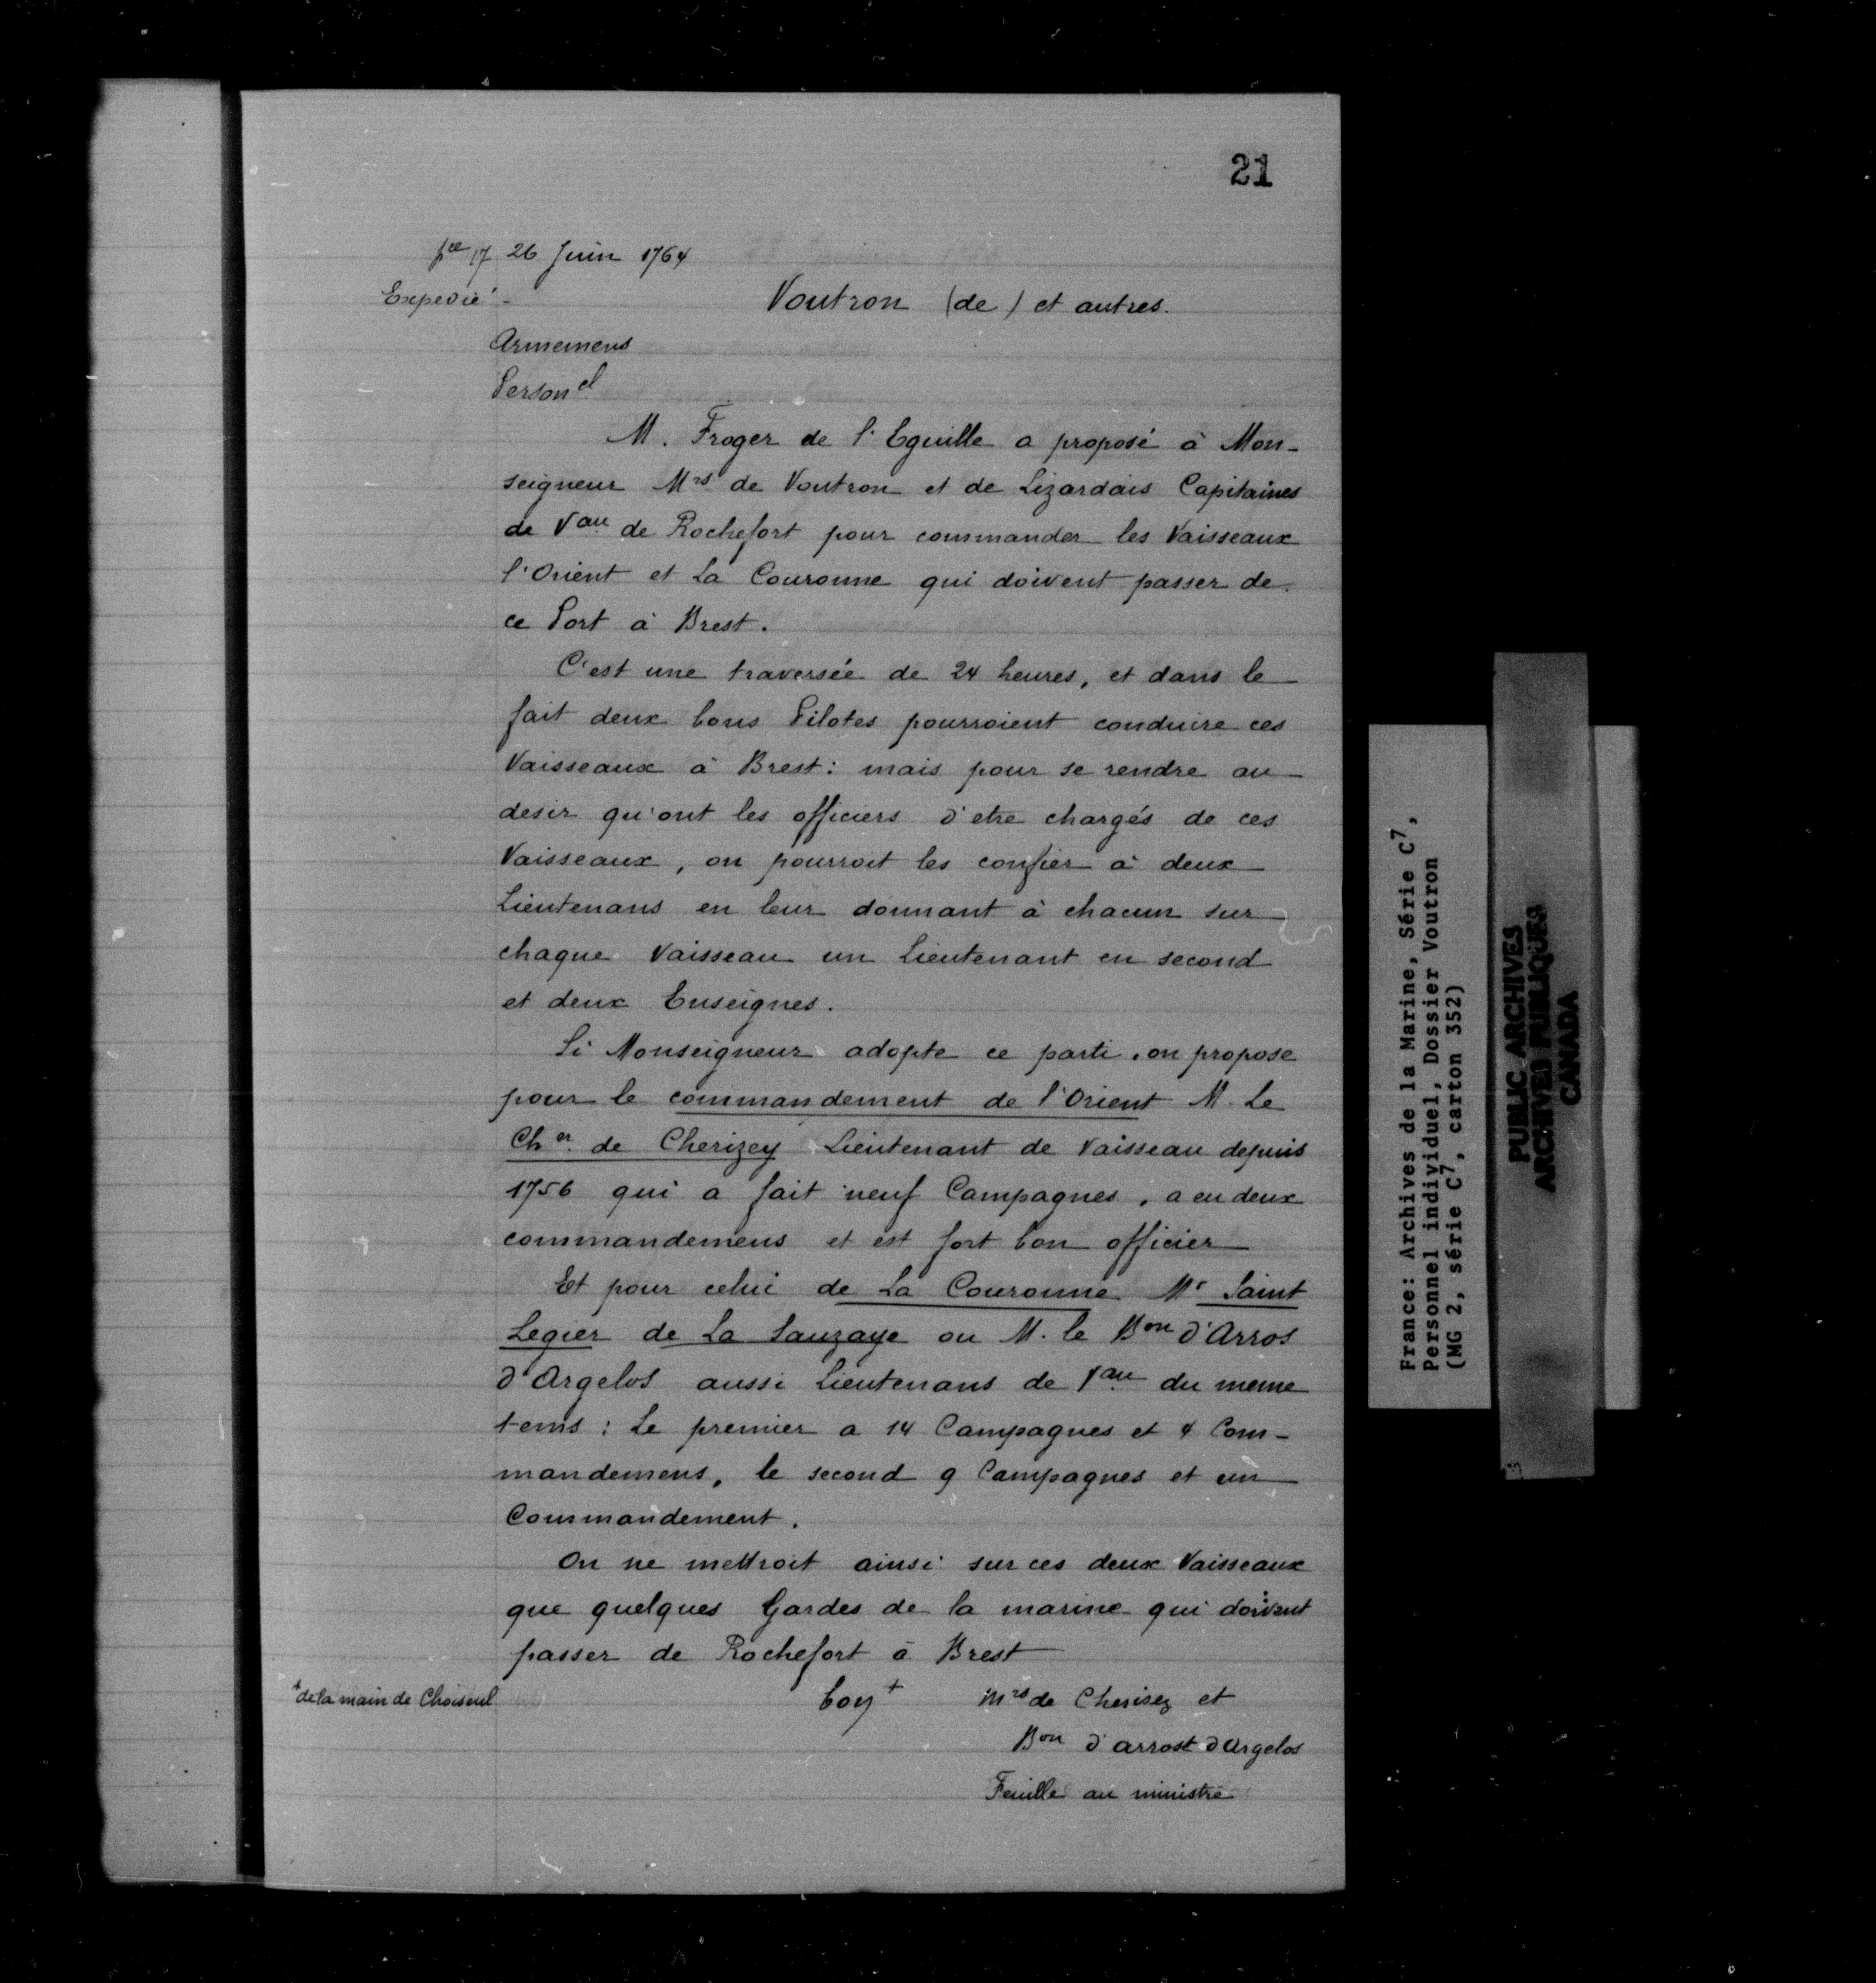 21
pce 17 26 Juin 1764
Expedié -
Voutron (de) et autres.
Armemens
Personel
M. Froger de l'Eguille a proposé à Mon-
seigneur Mrs de Voutron et de Lizardais Capitaines
de Vau de Rochefort pour commander les Vaisseaux
l'Orient et La Couronne qui doivent passer de
ce Port à Brest.
C'est une traversée de 24 heures, et dans le
fait deux bons Pilotes pourroient conduire ces
Vaisseaux à Brest: mais pour se rendre au
desir qu'ont les officiers d'etre chargés de ces
Vaisseaux, on pourroit les confier à deux
Lieutenans en leur donnant à chacun sur
chaque Vaisseau un Lieutenant en second
et deux Enseignes.
Si Monseigneur adopte ce parti, on propose
pour le commandement de l'Orient M. Le
Cher de Cherizey Lieutenant de Vaisseau depuis
1756 qui a fait neuf Campagnes, a eu deux
commandemens et est fort bon officier
Et pour celui de La Couronne Mr Saint
Legier de La Sauzaye ou M. le Bon d'Arros
d'Argelos aussi Lieutenans de Vau du meme
tems: Le premier a 14 Campagnes et 4 Com-
mandemens, le second 9 Campagnes et un
Commandement.
On ne mettroit ainsi sur ces deux Vaisseaux
que quelques Gardes de la marine qui doivent
passer de Rochefort à Brest
+de la main de Choiseul
bon + Mrs de Cherisey et
Bon d'arrost d'Argelos
Feuille au ministre
France: Archives de la Marine, Série C7,
Personnel individuel, Dossier Voutron
(MG 2, série C7, carton 352)
PUBLIC ARCHIVES
ARCHIVES PUBLIQUES
CANADA